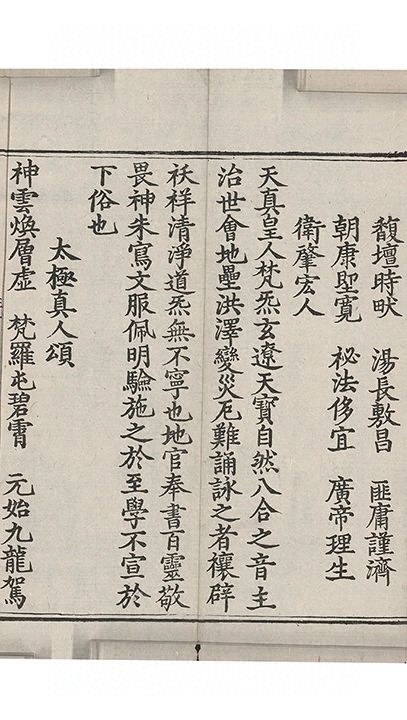 馥壇時吠 湯長敷昌 匪庸謹濟
朝康堲寬 祕法侈宜 廣帝理生
衛肇宏人
天真皇人梵炁玄遼天寶自然八合之音主
治世會地壘洪澤變災厄難誦詠之者禳辟
祅祥清淨道炁無不寧也地官奉書百靈敬
畏神朱寫文服佩明驗施之於至學不宣於
下俗也
太極真人頌
神雲煥層虛 梵羅屯碧霄 元始九龍駕